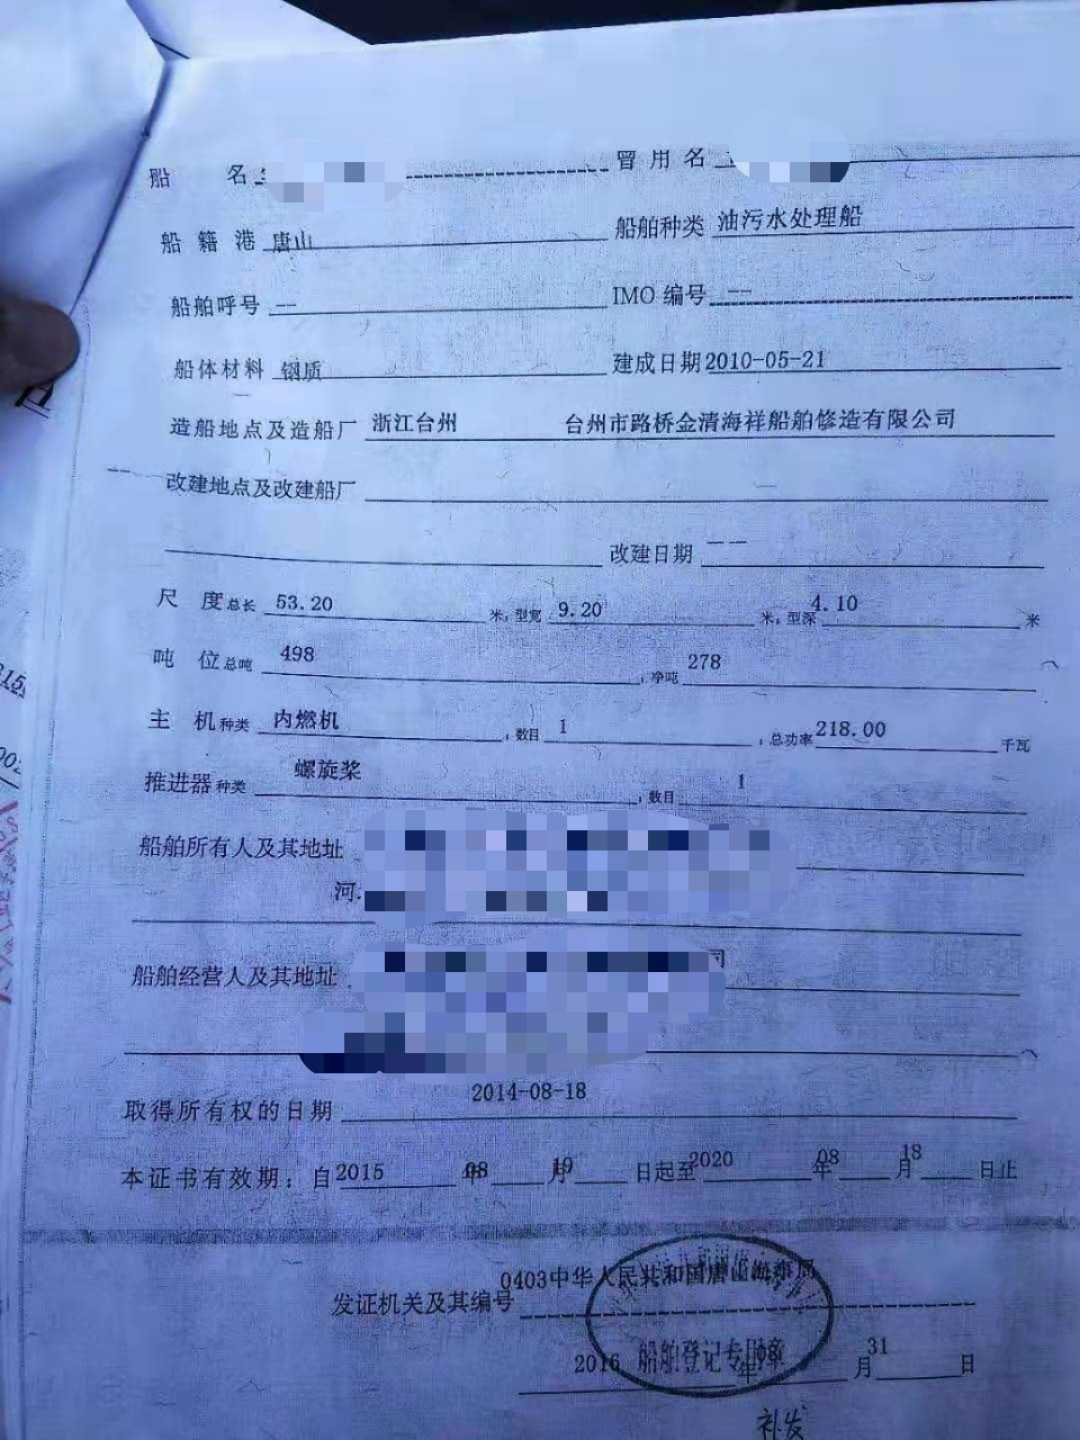 船 名 曾用名
船籍港 唐山 船舶种类 油污水处理船
船舶呼号 -- IMO 编号 --
船体材料 钢质 建成日期 2010-05-21
造船地点及造船厂 浙江台州 台州市路桥金清海祥船舶修造有限公司
-- 改建地点及改建船厂
改建日期 --
尺 度 总长 53.20 米；型宽 9.20 米；型深 4.10 米
吨 位 总吨 498 ；净吨 278
主 机 种类 内燃机 ；数目 1 ；总功率 218.00 千瓦
推进器 种类 螺旋桨 ；数目 1
船舶所有人及其地址
河
船舶经营人及其地址 司
取得所有权的日期 2014-08-18
本证书有效期：自 2015 年 08 月 19 日起至 2020 年 08 月 18 日止
发证机关及其编号 0403中华人民共和国唐山海事局
船舶登记专用章
2016 年 08 月 31 日
补发